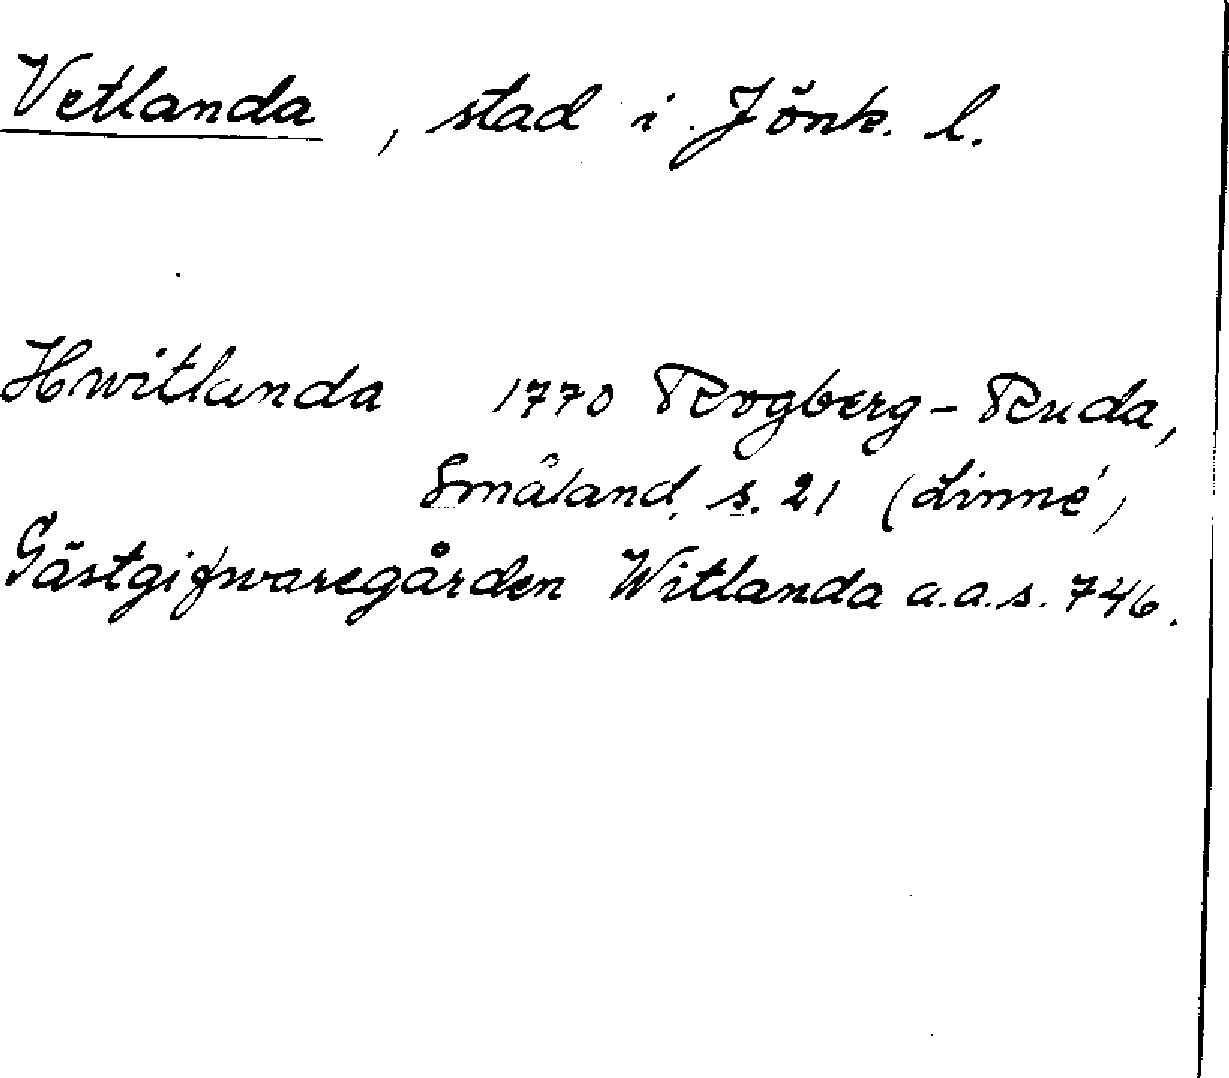 Vetlanda, stad i Jönk. l.
Hwitlanda 1770 Rogberg-Ruda,
Småland, s. 21 (Linné)
Gästgifwaregården Witlanda a.a.s. 746.